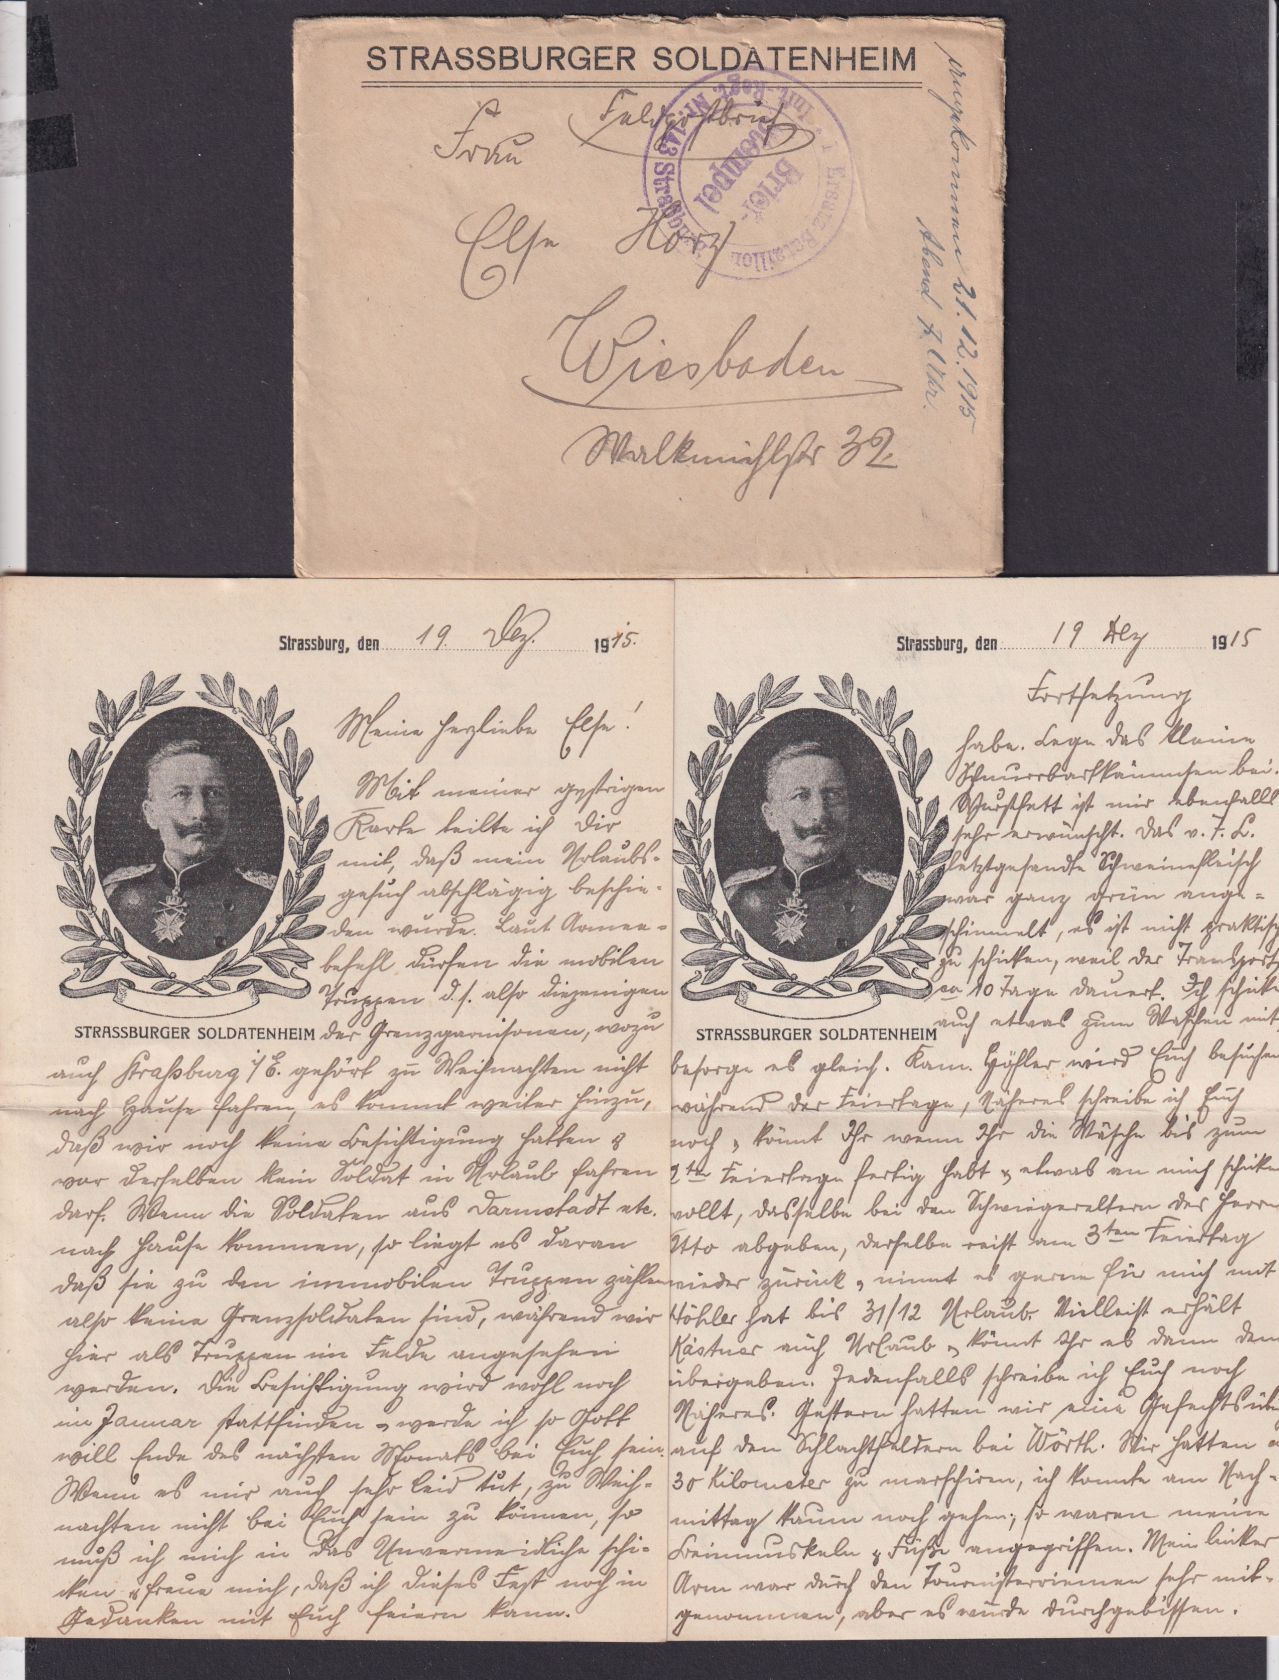 STRASSBURGER SOLDATENHEIM
Feldpostbrief
Frau
Else Horz
Wiesbaden
Walkmühlstr 32
angekommen 21.12.1915
Abend 7 Uhr.
1. Ersatz Bataillon
Inf.-Regt. Nr. 143 Strassburg
Brief-
stempel
Strassburg, den 19. Dez. 1915.
Meine herzliebe Else!
Mit meiner gestrigen
Karte teilte ich Dir
mit, daß mein Urlaubs-
gesuch abschlägig beschie-
den wurde. Laut Armee-
befehl dürfen die mobilen
Truppen d.h. also diejenigen
STRASSBURGER SOLDATENHEIM
der Grenzgarnisonen, wozu
auch Straßburg i/E. gehört zu Weihnachten nicht
nach Hause fahren, es kommt weiter hinzu,
daß wir noch keine Besichtigung hatten &
vor derselben kein Soldat in Urlaub fahren
darf. Wenn die Soldaten aus Darmstadt etc.
nach Hause kommen, so liegt es daran
daß sie zu den immobilen Truppen zählen
also keine Grenzsoldaten sind, während wir
hier als Truppen im Felde angesehen
werden. Die Besichtigung wird wohl noch
im Januar stattfinden & werde ich so Gott
will Ende des nächsten Monats bei Euch sein.
Wenn es mir auch sehr leid tut, zu Weih-
nachten nicht bei Euch sein zu können, so
muß ich mich in das Unvermeidliche schi-
cken & freue mich, daß ich dieses Fest noch in
Gedanken mit Euch feiern kann.
Strassburg, den 19 Dez 1915
Fortsetzung
habe. Lege das kleine
Schnurrbartkämmchen bei.
Wurstfett ist mir ebenfalls
sehr erwünscht. Das v. F. L.
letztgesandte Schweinefleisch
war ganz grün ange-
schimmelt, es ist nicht praktisch
zu schicken, weil der Transport
ca 10 Tage dauert. Ich schicke
STRASSBURGER SOLDATENHEIM
auch etwas zum Waschen mit
besorge es gleich. Kam. Höhler wird Euch besuchen
während der Feiertage, Näheres schreibe ich Euch
noch & könnt Ihr wenn Ihr die Wäsche bis zum
2ten Feiertage fertig habt & etwas an mich schicken
wollt, dasselbe bei den Schwiegereltern des Herrn
Otto abgeben, derselbe reist am 3ten Feiertag
wieder zurück & nimmt es gerne für mich mit
Höhler hat bis 31/12 Urlaub. Vielleicht erhält
Kästner auch Urlaub & könnt Ihr es dann dem
übergeben. Jedenfalls schreibe ich Euch noch
Näheres. Gestern hatten wir eine
auf den Schlachtfeldern bei Wörth. Wir hatten
30 Kilometer zu marschiren, ich konnte am Nach-
mittag kaum noch gehen, so waren meine
Beinmuskeln & Füße angegriffen. Mein linker
Arm war durch den Tournisterriemen sehr mit-
genommen, aber es wurde durchgebissen.